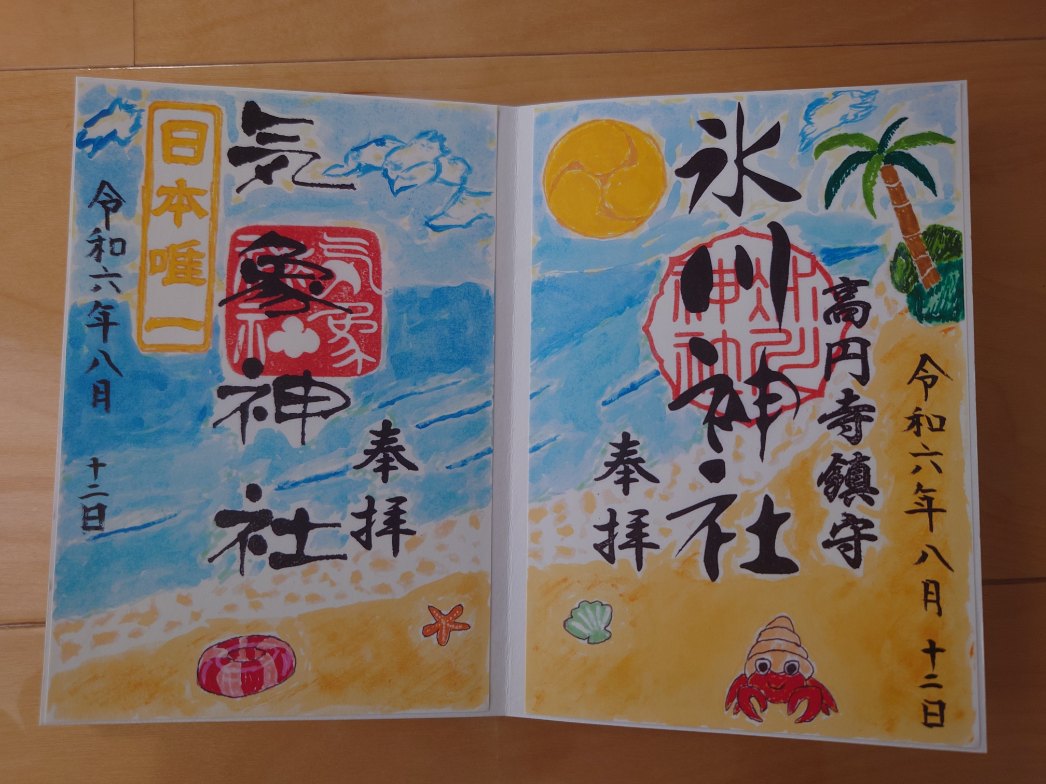 高円寺鎮守
氷川神社
奉拝
令和六年八月十二日
氷川
神社
奉拝
気象神社
日本唯一
令和六年八月
十二日
気象
神社